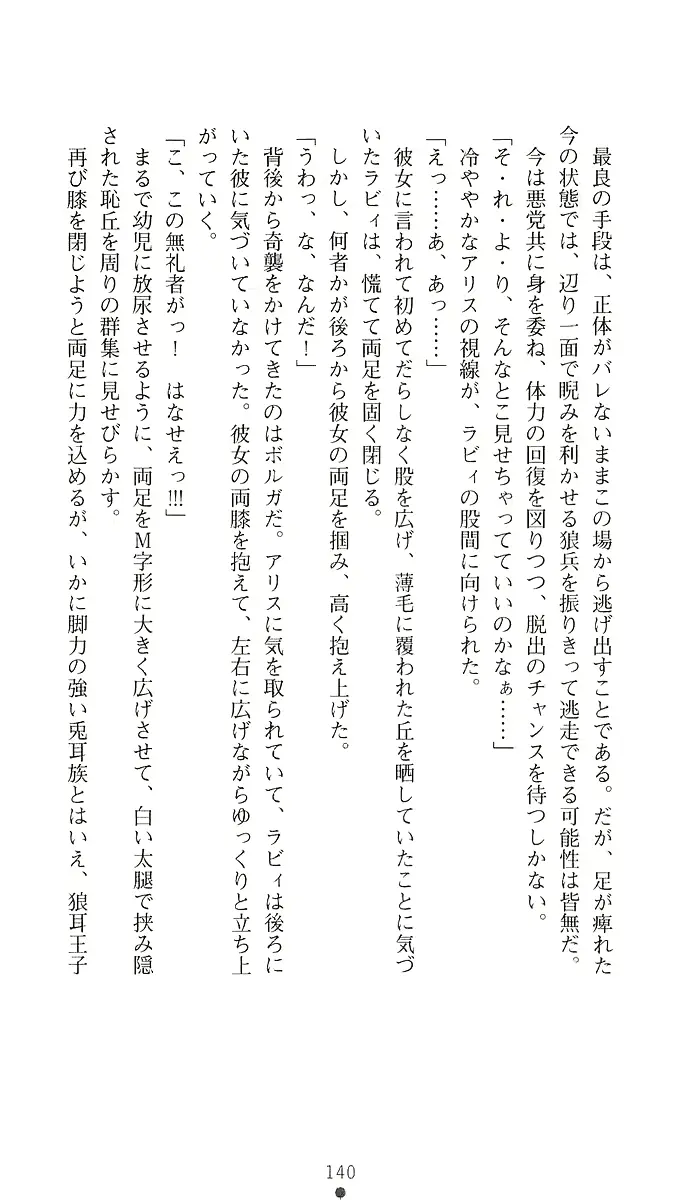 最良の手段は、正体がバレないままこの場から逃げ出すことである。だが、足が痺れた
今の状態では、辺り一面で睨みを利かせる狼兵を振りきって逃走できる可能性は皆無だ。
今は悪党共に身を委ね、体力の回復を図りつつ、脱出のチャンスを待つしかない。
「そ・れ・よ・り、そんなとこ見せちゃってていいのかなぁ……」
冷ややかなアリスの視線が、ラビィの股間に向けられた。
「えっ……あ、あっ……」
彼女に言われて初めてだらしなく股を広げ、薄毛に覆われた丘を晒していたことに気づ
いたラビィは、慌てて両足を固く閉じる。
しかし、何者かが後ろから彼女の両足を掴み、高く抱え上げた。
「うわっ、な、なんだ！」
背後から奇襲をかけてきたのはボルガだ。アリスに気を取られていて、ラビィは後ろに
いた彼に気づいていなかった。彼女の両膝を抱えて、左右に広げながらゆっくりと立ち上
がっていく。
「こ、この無礼者がっ！　はなせえっ!!!」
まるで幼児に放尿させるように、両足をＭ字形に大きく広げさせて、白い太腿で挟み隠
された恥丘を周りの群集に見せびらかす。
再び膝を閉じようと両足に力を込めるが、いかに脚力の強い兎耳族とはいえ、狼耳王子
140